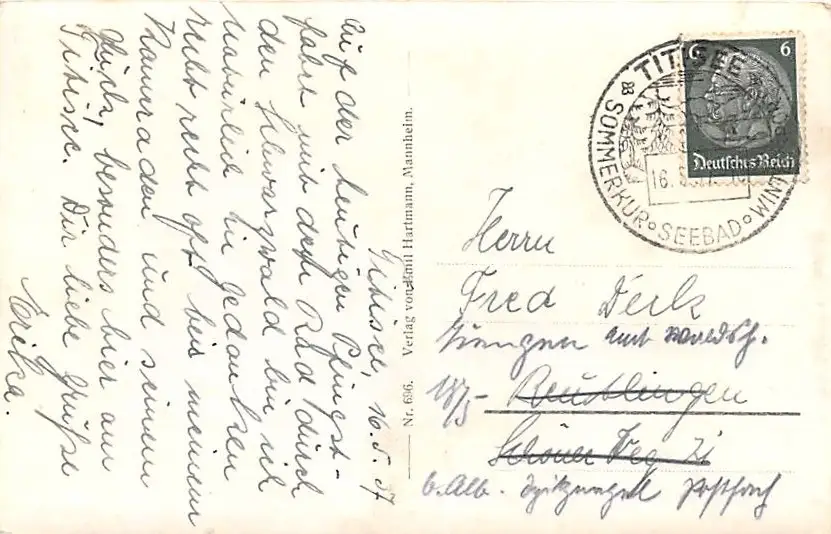 Titisee, 16.5.37
Auf der heutigen Pfingst-
fahrt mit dem Rad durch
den Schwarzwald bin ich
natürlich in Gedanken
recht recht oft bei meinem
Kameraden und seinem
besonders hier am
Titisee. Dir liebe Grüße
Erika.
Nr. 696. Verlag von Emil Hartmann, Mannheim.
TITISEE
SOMMERKUR SEEBAD WINT
16.
6 6
Deutsches Reich
Herrn
Fred
amt Waldsh.
18/5- Reutlingen
Schöner Weg
b. Alb. postfach